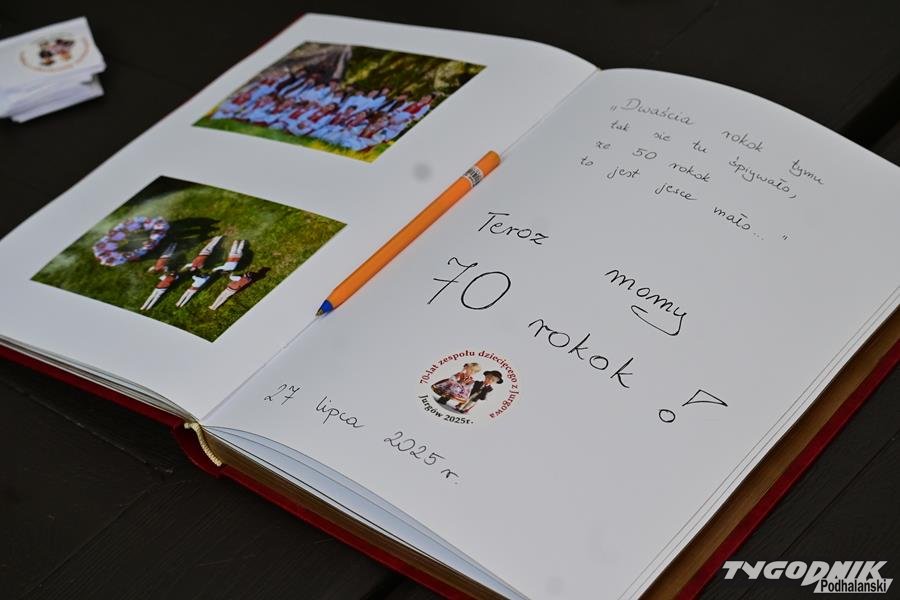 „Dwaścia rokok tymu
tak sie tu śpiywało,
ze 50 rokok
to jest jesce mało..."
Teroz momy
70 rokok !
70-lat zespołu dziecięcego z Jurgowa
Jurgów 2025r.
27 lipca 2025 r.
TYGODNIK
Podhalański